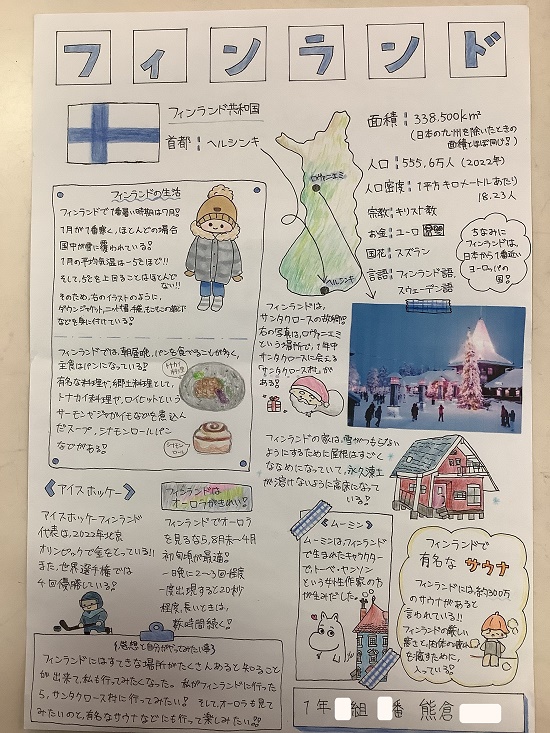 フィンランド
フィンランド共和国
首都：ヘルシンキ
ロヴァニエミ
ヘルシンキ
面積：338.500km²
（日本の九州を除いたときの
面積とほぼ同じ!）
人口：555,6万人（2022年）
人口密度：1平方キロメートルあたり
18.23人
宗教：キリスト教
お金：ユーロ
国花：スズラン
言語：フィンランド語,
スウェーデン語
ちなみに
フィンランドは、
日本から1番近い
ヨーロッパの
国!
フィンランドの生活
フィンランドで1番暑い時期は7月!
1月が1番寒く、ほとんどの場合
国中が雪に覆われている!
1月の平均気温は-5℃ほど!!
そして、5℃を上回ることはほとんど
ない!!
そのため、右のイラストのように、
ダウンジャケット、ニット帽、手袋、もこもこの靴下
などを身に付けている!
フィンランドでは、朝昼晩、パンを食べることが多く、
主食はパンになっている!
有名な料理や、郷土料理として、
トナカイ料理や、ロイヒットという
サーモンやジャガイモなどを煮込ん
だスープ、シナモンロールパン
などがある!
トナカイ
料理
シナモン
ロール
フィンランドは、
サンタクロースの故郷!
右の写真は、ロヴァニエミ
という場所で、1年中
サンタクロースに会える
「サンタクロース村」が
ある!
フィンランドの家は、雪がつもらない
ようにするために屋根はすごく
ななめになっていて、永久凍土
が溶けないように高床になって
いる!
《アイスホッケー》
アイスホッケーフィンランド
代表は、2022年北京
オリンピックで金をとっている!!
また、世界選手権では
4回優勝している!
フィンランドは
オーロラがきれい!
フィンランドでオーロラ
を見るなら、8月末〜4月
初旬頃が最適!
一晩に2〜3回程度
一度出現すると20秒
程度、長いときは、
数時間続く!
《ムーミン》
ムーミンは、フィンランド
で生まれたキャラクター
で、トーベ・ヤンソン
という女性作家の方
が生みだした!
フィンランドで
有名な サウナ
フィンランドには、約300万
のサウナがあると
言われている!!
フィンランドの厳しい
寒さと、肉体の痛み
を癒すために、
入っている!
《感想と自分がやってみたい事》
フィンランドにはすてきな場所がたくさんあると知ること
が出来て、私も行ってみたくなった。私がフィンランドに行った
ら、サンタクロース村に行ってみたい! そして、オーロラも見て
みたいのと、有名なサウナなどにも行って楽しみたい!!
1年 組 番 熊倉